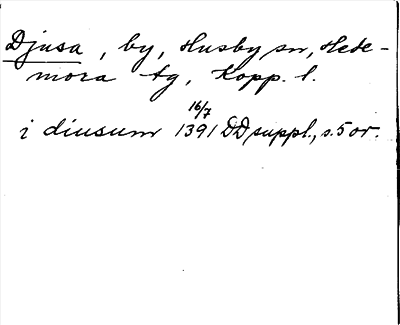 Djusa, by, Husby sn, Hede-
mora tg, Kopp. l.
16/7
i diusum 1391 DD suppl., s. 5 or.